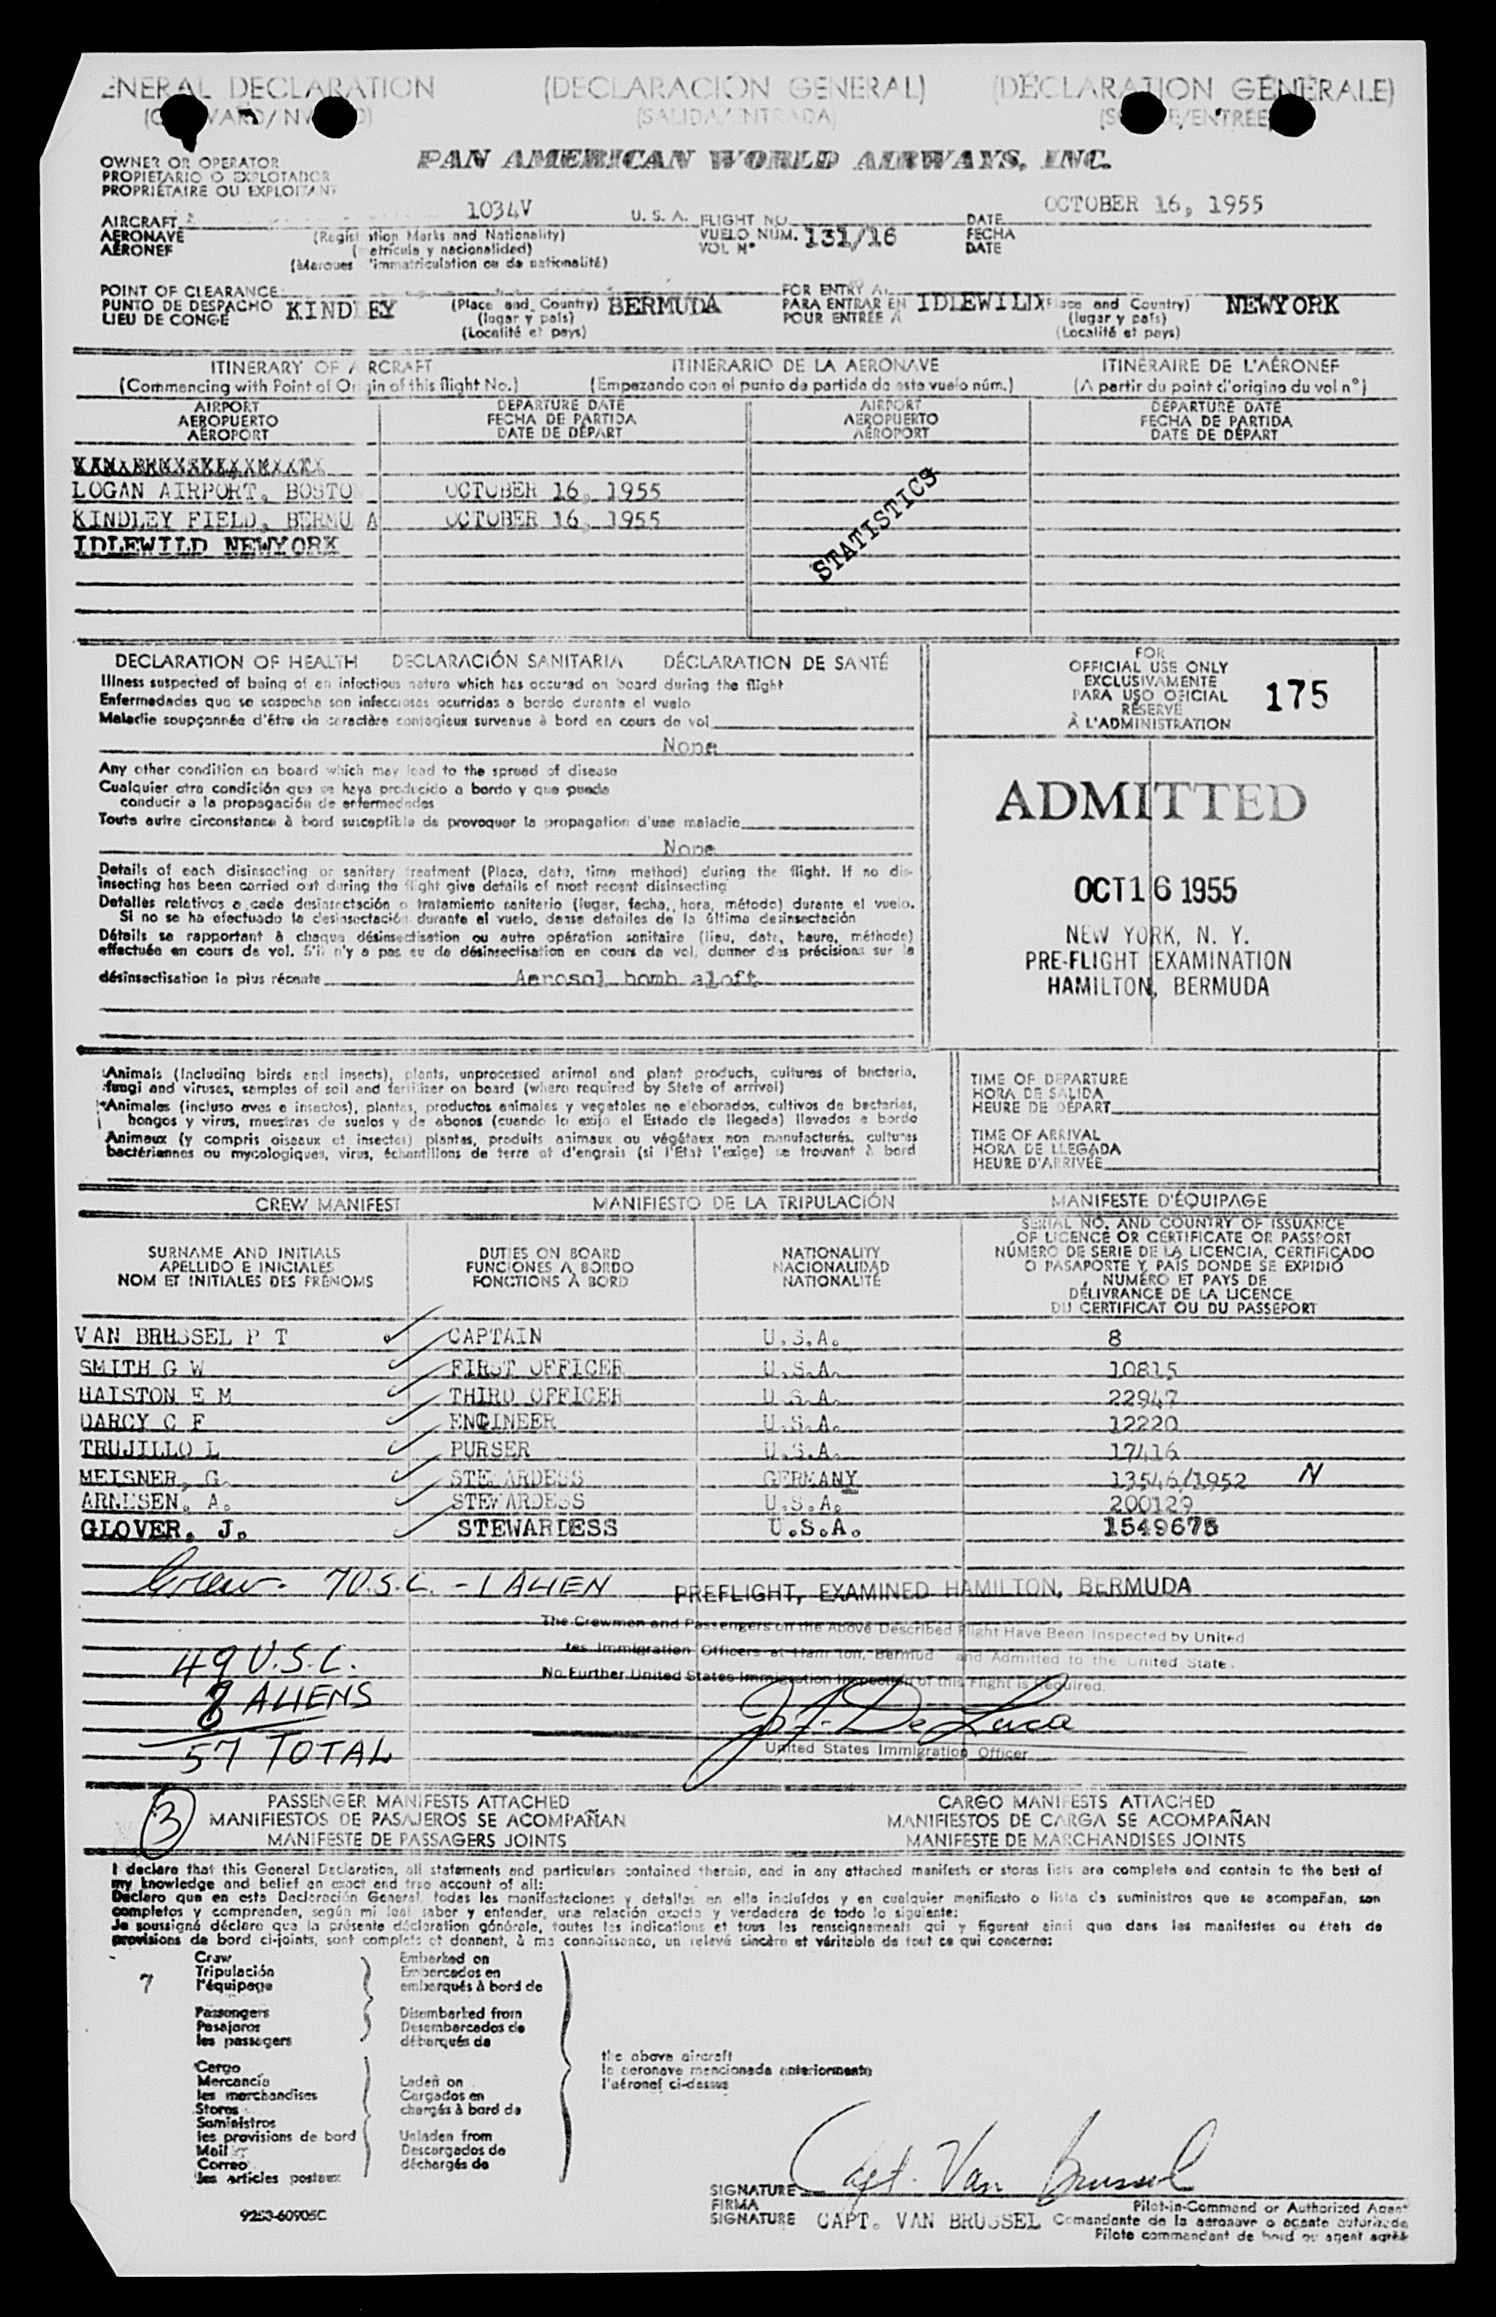 ENERAL DECLARATION (DECLARACIÓN GENERAL) (DÉCLARATION GÉNÉRALE)
(SALIDA/ENTRADA)
OWNER OR OPERATOR PAN AMERICAN WORLD AIRWAYS, INC.
PROPIETARIO O EXPLOTADOR
PROPRIÉTAIRE OU EXPLOITANT
AIRCRAFT 1034V U. S. A. FLIGHT NO. DATE OCTOBER 16, 1955
AERONAVE (Registration Marks and Nationality) VUELO NUM. 131/16 FECHA
AÉRONEF (matricula y nacionalidad) VOL Nº DATE
(Marques d'immatriculation ou de nationalité)
POINT OF CLEARANCE FOR ENTRY AT
PUNTO DE DESPACHO KINDLEY (Place and Country) BERMUDA PARA ENTRAR EN IDLEWILD (Place and Country) NEWYORK
LIEU DE CONGÉ (lugar y país) POUR ENTRÉE A (lugar y país)
(Localité et pays) (Localité et pays)
ITINERARY OF AIRCRAFT ITINERARIO DE LA AERONAVE ITINÉRAIRE DE L'AÉRONEF
(Commencing with Point of Origin of this flight No.) (Empezando con el punto de partida de este vuelo núm.) (A partir du point d'origine du vol nº)
AIRPORT DEPARTURE DATE AIRPORT DEPARTURE DATE
AEROPUERTO FECHA DE PARTIDA AEROPUERTO FECHA DE PARTIDA
AÉROPORT DATE DE DÉPART AÉROPORT DATE DE DÉPART
LOGAN AIRPORT, BOSTO OCTOBER 16, 1955
KINDLEY FIELD, BERMU A OCTOBER 16, 1955
IDLEWILD NEWYORK
STATISTICS
DECLARATION OF HEALTH DECLARACIÓN SANITARIA DÉCLARATION DE SANTÉ
Illness suspected of being of an infectious nature which has occured on board during the flight
Enfermedades que se sospecha son infecciosas ocurridas a bordo durante el vuelo
Maladie soupçonnée d'être de caractère contagieux survenue à bord en cours de vol
None
Any other condition on board which may lead to the spread of disease
Cualquier otra condición que se haya producido a bordo y que puede
conducir a la propagación de enfermedades
Toute autre circonstance à bord susceptible de provoquer la propagation d'une maladie
None
Details of each disinsecting or sanitary treatment (Place, date, time method) during the flight. If no dis-
insecting has been carried out during the flight give details of most recent disinsecting
Detalles relativos a cada desinsectación o tratamiento sanitario (lugar, fecha, hora, método) durante el vuelo.
Si no se ha efectuado la desinsectación durante el vuelo, dense detalles de la última desinsectación
Détails se rapportant à chaque désinsectisation ou autre opération sanitaire (lieu, date, heure, méthode)
effectuée en cours de vol. S'il n'y a pas eu de désinsectisation en cours de vol, donner des précisions sur la
désinsectisation la plus récente Aerosol bomb aloft
FOR
OFFICIAL USE ONLY
EXCLUSIVAMENTE
PARA USO OFICIAL 175
RÉSERVÉ
À L'ADMINISTRATION
ADMITTED
OCT 16 1955
NEW YORK, N. Y.
PRE-FLIGHT EXAMINATION
HAMILTON, BERMUDA
Animals (Including birds and insects), plants, unprocessed animal and plant products, cultures of bacteria,
fungi and viruses, samples of soil and fertilizer on board (where required by State of arrival)
Animales (incluso aves e insectos), plantas, productos animales y vegetales no elaborados, cultivos de bacterias,
hongos y virus, muestras de suelos y de abonos (cuando lo exija el Estado de llegada) llevados a bordo
Animaux (y compris oiseaux et insectes) plantes, produits animaux ou végétaux non manufacturés, cultures
bactériennes ou mycologiques, virus, échantillons de terre et d'engrais (si l'État l'exige) se trouvant à bord
TIME OF DEPARTURE
HORA DE SALIDA
HEURE DE DÉPART
TIME OF ARRIVAL
HORA DE LLEGADA
HEURE D'ARRIVÉE
CREW MANIFEST MANIFIESTO DE LA TRIPULACIÓN MANIFESTE D'ÉQUIPAGE
SURNAME AND INITIALS
APELLIDO E INICIALES
NOM ET INITIALES DES PRÉNOMS
DUTIES ON BOARD
FUNCIONES A BORDO
FONCTIONS À BORD
NATIONALITY
NACIONALIDAD
NATIONALITÉ
SERIAL NO. AND COUNTRY OF ISSUANCE
OF LICENCE OR CERTIFICATE OR PASSPORT
NÚMERO DE SERIE DE LA LICENCIA, CERTIFICADO
O PASAPORTE Y PAIS DONDE SE EXPIDIÓ
NUMÉRO ET PAYS DE
DÉLIVRANCE DE LA LICENCE
DU CERTIFICAT OU DU PASSEPORT
VAN BRUSSEL P T CAPTAIN U.S.A. 8
SMITH G W FIRST OFFICER U.S.A. 10815
HAISTON E M THIRD OFFICER U.S.A. 22947
DARCY C F ENGINEER U.S.A. 12220
TRUJILLO L PURSER U.S.A. 17416
MEISNER, G. STEWARDESS GERMANY 13546/1952 N
ARNESEN, A. STEWARDESS U.S.A. 200129
GLOVER, J. STEWARDESS U.S.A. 1549675
Crew - 7 U.S.C. - 1 ALIEN PREFLIGHT, EXAMINED HAMILTON, BERMUDA
The Crewmen and Passengers on the Above Described Flight Have Been Inspected by United
tes Immigration Officers at Ham ton, Bermud and Admitted to the United State.
No Further United States Immigration Inspection of this Flight is Required.
49 U.S.C.
8 ALIENS
57 TOTAL
United States Immigration Officer
3
PASSENGER MANIFESTS ATTACHED CARGO MANIFESTS ATTACHED
MANIFIESTOS DE PASAJEROS SE ACOMPAÑAN MANIFIESTOS DE CARGA SE ACOMPAÑAN
MANIFESTE DE PASSAGERS JOINTS MANIFESTE DE MARCHANDISES JOINTS
I declare that this General Declaration, all statements and particulars contained therein, and in any attached manifests or stores lists are complete and contain to the best of
my knowledge and belief an exact and true account of all:
Declaro que en esta Declaración General, todas las manifestaciones y detalles en ella incluídos y en cualquier manifiesto o lista de suministros que se acompañan, son
completos y comprenden, según mi leal saber y entender, una relación exacta y verdadera de todo lo siguiente:
Je soussigné déclare que la présente déclaration générale, toutes les indications et tous les renseignements qui y figurent ainsi que dans les manifestes ou états de
provisions de bord ci-joints, sont complets et donnent, à ma connaissance, un relevé sincère et véritable de tout ce qui concerne:
Crew Embarked on
Tripulación Embarcados en
7 l'équipage embarqués à bord de
Passengers Disembarked from
Pasajeros Desembarcados de
les passagers débarqués de
the above aircraft
la aeronave mencionada anteriormente
l'aéronef ci-dessus
Cargo
Mercancía Laden on
les marchandises Cargados en
Stores chargés à bord de
Suministros
les provisions de bord Unladen from
Mail Descargados de
Correo déchargés de
les articles postaux
SIGNATURE Capt. Van Brussel
FIRMA Pilot-in-Command or Authorized Agent
SIGNATURE CAPT. VAN BRUSSEL Comandante de la aeronave o agente autorizado
Pilote commandant de bord ou agent agréé
9253-60905C